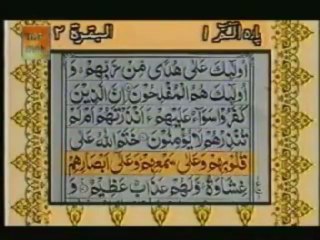 البقرة ٢
پارہ الٓمّٓ ١
أُولٰٓئِكَ عَلٰى هُدًى مِّنْ رَّبِّهِمْ وَ
أُولٰٓئِكَ هُمُ الْمُفْلِحُوْنَ اِنَّ الَّذِيْنَ
كَفَرُوْا سَوَآءٌ عَلَيْهِمْ ءَاَنْذَرْتَهُمْ اَمْ لَمْ
تُنْذِرْهُمْ لَا يُؤْمِنُوْنَ خَتَمَ اللّٰهُ عَلٰى
قُلُوْبِهِمْ وَعَلٰى سَمْعِهِمْ وَعَلٰٓى اَبْصَارِهِمْ
غِشَاوَةٌ وَّلَهُمْ عَذَابٌ عَظِيْمٌ وَ